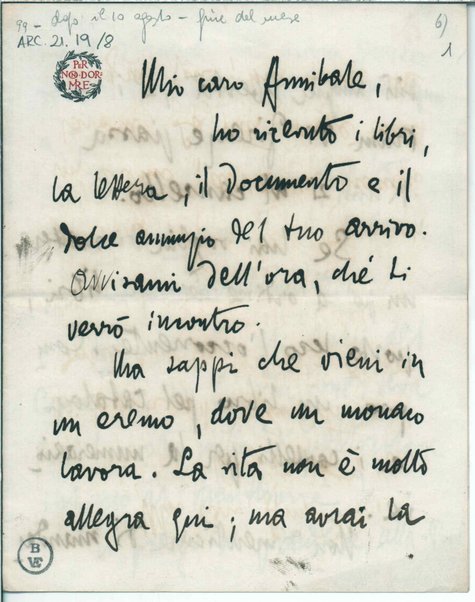 99 - dopo il 10 agosto - fine del mese
6)
ARC. 21. 19/8
1
PER
NON DOR
MIRE
Mio caro Annibale,
ho ricevuto i libri,
la lettera, il documento e il
dolce annunzio del tuo arrivo.
Avvisami dell'ora, ché ti
verrò incontro.
Ma sappi che vieni in
un eremo, dove un monaco
lavora. La vita non è molto
allegra qui; ma avrai la
B
VE